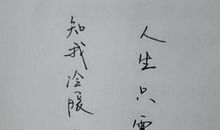 人生只需
知我冷暖